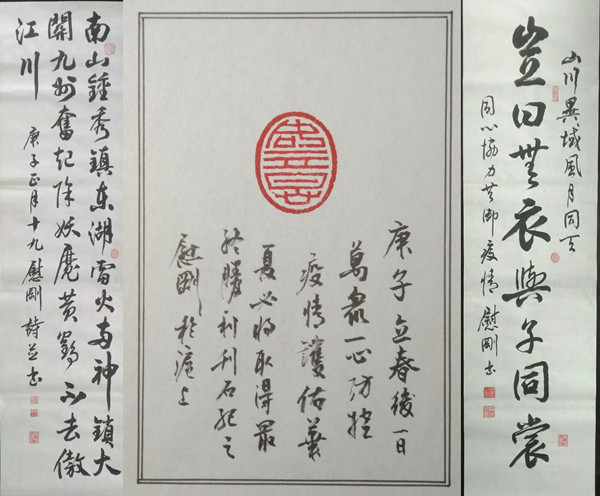 南山鍾秀鎮東湖雷火两神鎖大
開九州奮起除妖魔黄鶴不去傲
江川
庚子正月十九慰剛詩並書
庚子立春後一日
萬衆一心防控
疫情護佑華
夏必将取得最
終勝利刊石紀之
慰剛於滬上
山川異域風月同天
豈曰無衣與子同裳
同心協力共御疫情慰剛書